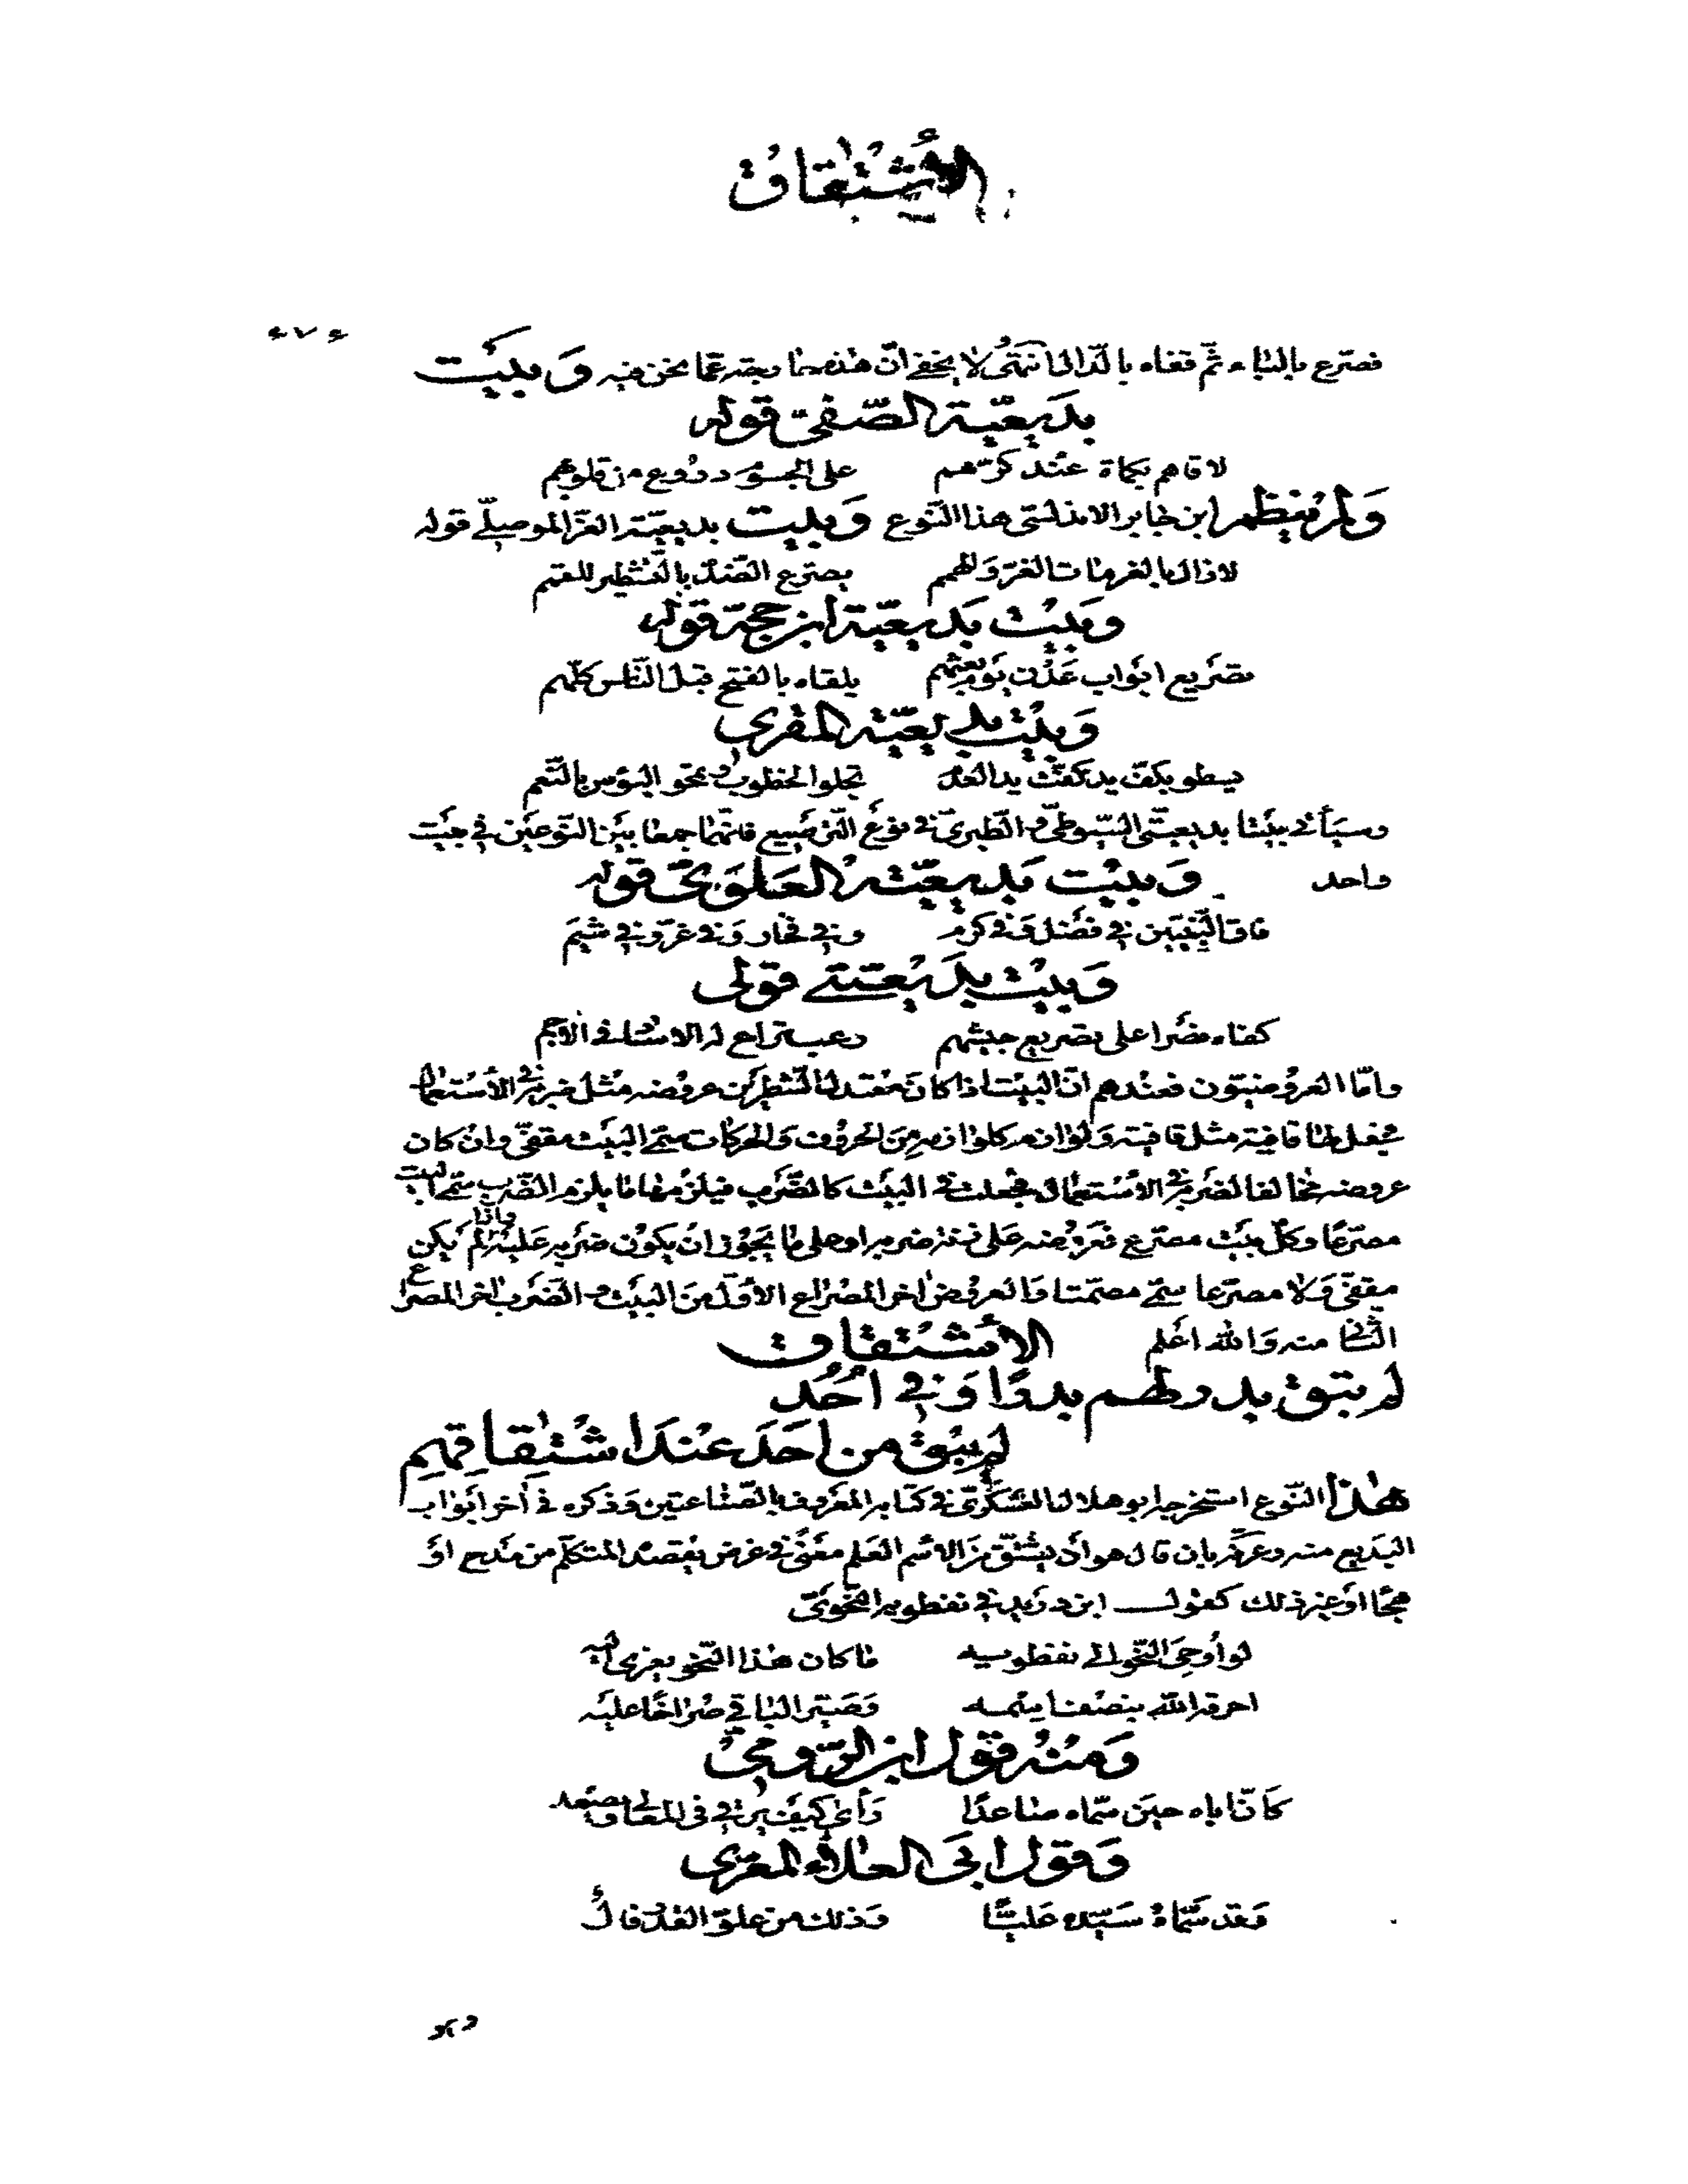 الأشتقاق
٤٧٤
فصرّع بالباء ثمّ قفاه بالدال انتهى لا يخفى انّ هذه ممّا وجه عمّا نحن فيه وَبيت
بديعيّة الصّفيّ قوله
لاقاهم بكماة عند كرّهم على الجسوم دروع من قلوبهم
وَلم ينظم ابن جابر الاندلسى هذا النّوع وَبيت بديعيّة العزّ الموصليّ قوله
لا زال بالغرمات الغرّ وَالهمم يصرّع الضدّ بالتّشطير للقمم
وبيت بديعيّة ابن حجة قوله
تصريع ابواب عَدْن يَوم بعثهم يلقاه بالفتح قبل النّاس كلّهم
وَبيت بديعيّة المقرى
يسطو بكفّ يد كفّت يد العدَم تجلو الخطوب وتمحو البؤس بالنّعم
وسيأتى بيتا بديعيّتى السّيوطىّ والطّبرىّ فى نوع التّرصيع فانّهما جمعا بين النّوعين فى بيت
واحد وَبيت بديعيّة العلوىّ قوله
فاق النّبيّين فى فضل وَفى كرم وفى فخار وَفى عزّ وفى شيَم
وَبيت بديعيّتى قولى
كفاه نصرا على تصريع جيشهم رعب تراع له الاسْد فى الاجم
وامّا العروضيّون فعندهم انّ البيت اذا كان معتدل الشّطرين عروضه مثل ضربه فى الأستعمال
فجعل لها قافية مثل قافيته وَلوازمه كلوازمه من الحروف وَالحركات سمّى البيت مقفّى وان كان
عروضه مخالفا لضربه فى الأستعمال فجعلت فى البيت كالضّرب فيلزمها ما يلزم الضّرب سمّى البيت
مصرّعا وكلّ بيت مصرّع فعروضه على زنة ضربه او على ما يجوز ان يكون ضربه عليه واذا لم يكن
مقفّى وَلا مصرّعا سمّى مصمّتا وَالعروض اخر المصراع الأوّل من البيت والضّرب اخر المصراع
الثّانى منه وَالله اعلم الأشتقاق
لم يبق بدر لهم بدرًا وَفى اُحُد
لم يبق من احَد عند اشتقاقهمِ
هٰذا النّوع استخرجه ابو هلال العسكرىّ فى كتابه المعروف بالصّناعتين وَذكره فى أخر ابواب
البديع منه وعرّفه بان قال هو أن يشتق من الاسم العلم معنى فى غرض يقصده المتكلّم من مدح اَو
هجا او غير ذلك كقول ابن دريد فى نفطويه النّحوىّ
لو اُوحى النّحو الى نفطويه ما كان هٰذا النّحو يعزى اليه
احرقه الله بنصف اسمه وَصيّر الباقى صراخا عليه
وَمنه قول ابن الرّومىّ
كأنّ اباه حين سمّاه صاعدًا رَأى كيف يرقى فى المعالى ويصعد
وَقول ابى العلاء المعرّى
وَقد سمّاه سَيّده عَليًّا وَذلك من علوّ القدر فال